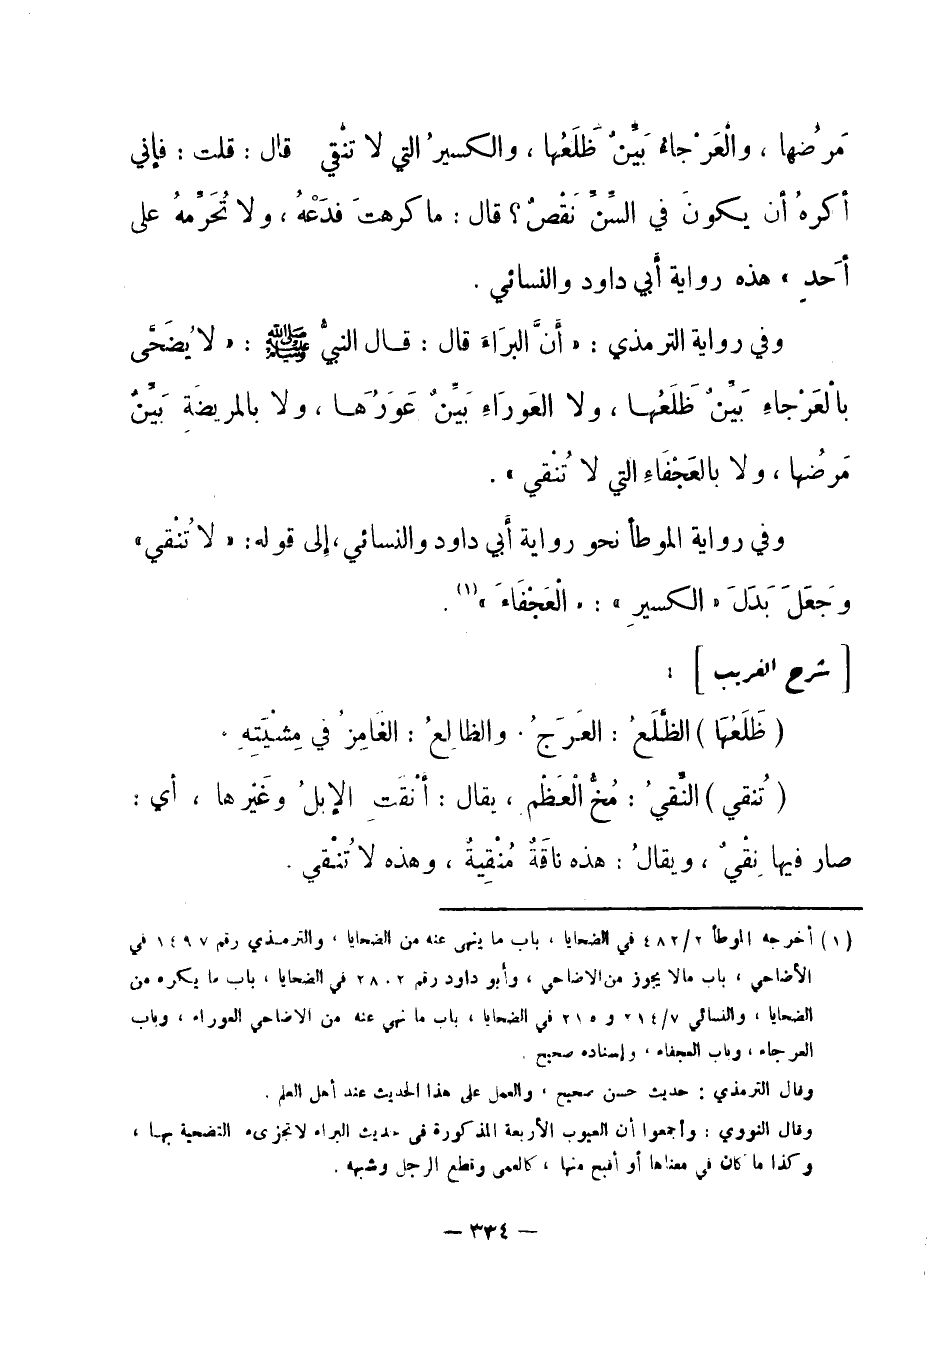 مَرضُها ، والْعَرْجاءُ بَيِّنٌ ظَلَعُها ، والكسيرُ التي لا تنْقِي قال : قلت : فإني
أكرهُ أن يكونَ في السِّنِّ نَقْصٌ ؟ قال : ما كرهتَ فدَعْهُ ، ولا تُحَرِّمهُ على
أحدٍ » هذه رواية أبي داود والنسائي .
وفي رواية الترمذي : « أنَّ البرَاءَ قال : قال النبيُّ ﷺ : « لا يُضَحَّى
بالْعَرْجاءِ بَيِّنٌ ظَلَعُها ، ولا العَوراءِ بَيِّنٌ عَوَرُها ، ولا بالمريضَةِ بَيِّنٌ
مَرضُها ، ولا بالعَجْفَاءِ التي لا تُنْقي » .
وفي رواية الموطأ نحو رواية أبي داود والنسائي ، إلى قوله : « لا تُنْقي »
وَجَعَلَ بَدَلَ « الكسيرِ » : « الْعَجْفَاءَ » (١) .
[ شرح الغريب ] :
( ظَلَعُهَا ) الظَّلَعُ : العَرَجُ . والظالِعُ : الغَامِزُ في مِشْيَتِهِ .
( تُنقي ) النِّقيُ : مُخُّ الْعَظْمِ ، يقال : أنْقَتِ الإبلُ وغَيْرها ، أي :
صار فيها نِقْيٌ ، ويقالُ : هذه ناقَةٌ مُنْقِيةٌ ، وهذه لا تُنْقي .
(١) أخرجه الموطأ ٤٨٢/٢ في الضحايا ، باب ما ينهى عنه من الضحايا ، والترمذي رقم ١٤٩٧ في
الأضاحي ، باب مالا يجوز من الاضاحي ، وأبو داود رقم ٢٨٠٢ في الضحايا ، باب ما يكره من
الضحايا ، والنسائي ٢١٤/٧ و ٢١٥ في الضحايا ، باب ما نهي عنه من الاضاحي العوراء ، وباب
العرجاء ، وباب العجفاء ، وإسناده صحيح .
وقال الترمذي : حديث حسن صحيح ، والعمل على هذا الحديث عند أهل العلم .
وقال النووي : وأجمعوا أن العيوب الأربعة المذكورة في حديث البراء لاتجزىء التضحية بها ،
وكذا ما كان في معناها أو أقبح منها ، كالعمى وقطع الرجل وشبهه .
— ٣٣٤ —